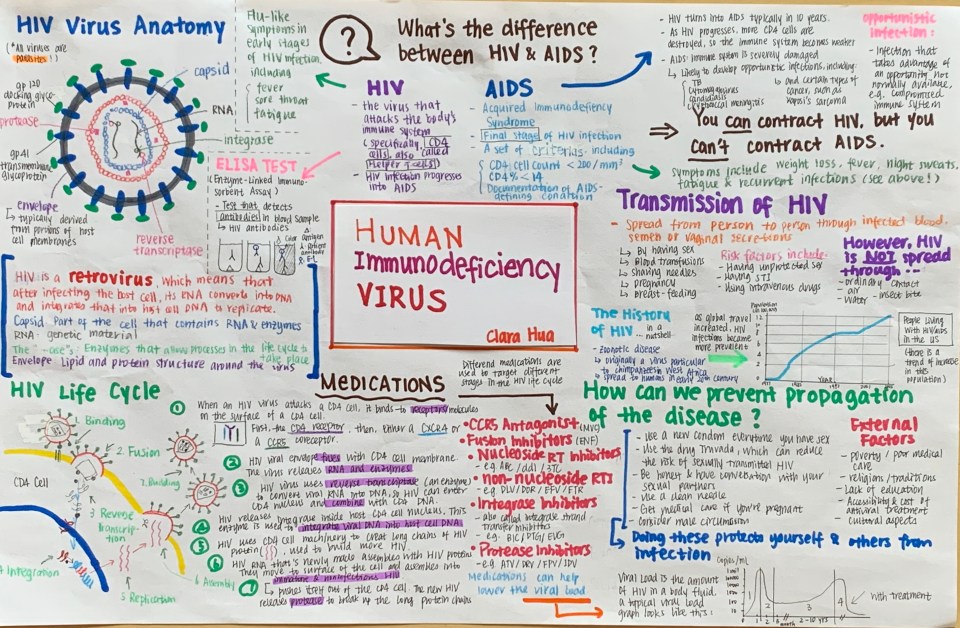 HIV Virus Anatomy
(*All viruses are
parasites!!)
gp120
docking glyco-
protein
protease
gp41
transmembrane
glycoprotein
envelope
↳ typically derived
from portions of host
cell membranes
capsid
RNA
integrase
reverse
transcriptase
Flu-like
symptoms in
early stages
of HIV infection,
including
fever
sore throat
fatigue
ELISA TEST
(Enzyme-Linked Immuno-
sorbent Assay)
- Test that detects
antibodies in blood sample
↳ HIV antibodies
HIV is a retrovirus, which means that
after infecting the host cell, its RNA converts into DNA
and integrates that into host cell DNA to replicate.
Capsid: Part of the cell that contains RNA & enzymes
RNA: genetic material
The "-ase's": Enzymes that allow processes in the life cycle to
take place
Envelope: Lipid and protein structure around the virus
?
What's the difference
between HIV & AIDS?
HIV
- the virus that
attacks the body's
immune system
(specifically, CD4
cells, also called
Helper T cells)
- HIV infection progresses
into AIDS
AIDS
- Acquired Immunodeficiency
Syndrome
- Final stage of HIV infection
- A set of criterias including
CD4 cell count < 200/mm³
CD4% < 14
Documentation of AIDS-
defining condition
- HIV turns into AIDS typically in 10 years.
- As HIV progresses, more CD4 cells are
destroyed, so the immune system becomes weaker
- AIDS: immune system is severely damaged
↳ likely to develop opportunistic infections, including:
TB
cytomegalovirus
candidiasis
cryptococcal meningitis
↳ and certain types of
cancer, such as
Kaposi's sarcoma
opportunistic
infection:
- Infection that
takes advantage of
an opportunity not
normally available,
e.g. compromised
immune system
⇒ You can contract HIV, but you
can't contract AIDS.
Symptoms include weight loss, fever, night sweats,
fatigue & recurrent infections (see above!)
HUMAN
Immunodeficiency
VIRUS
Clara Hua
Transmission of HIV
- Spread from person to person through infected blood,
semen or vaginal secretions
↳ By having sex
↳ Blood transfusions
↳ sharing needles
↳ pregnancy
↳ Breast-feeding
Risk factors include:
- Having unprotected sex
- Having STI
- Using intravenous drugs
However, HIV
is NOT spread
through...
- ordinary contact
- air
- water
- insect bite
The History
of HIV ... in a
nutshell
- Zoonotic disease
↳ originally a virus particular
to chimpanzees in West Africa
↳ spread to humans in early 20th century
as global travel
increased, HIV
infections became
more prevalent
Year
People Living
with HIV/AIDS
in the US
(there is a
trend of increase
in this
population)
HIV Life Cycle
1 Binding
2 Fusion
3 Reverse
Transcrip-
tion
4 Integration
5 Replication
6 Assembly
7. Budding
CD4 Cell
MEDICATIONS
Different medications are
used to target different
stages in the HIV life cycle
1 When an HIV virus attacks a CD4 cell, it binds to receptors/molecules
on the surface of a CD4 cell.
First, the CD4 receptor, then, either a CXCR4 or
a CCR5 coreceptor.
2 HIV viral envelope fuses with CD4 cell membrane.
The virus releases RNA and enzymes
3 HIV virus uses reverse transcriptase (an enzyme)
to convert viral RNA into DNA, so HIV can enter
CD4 nucleus and combine with CD4 DNA.
4 HIV releases integrase inside host CD4 cell nucleus. This
enzyme is used to integrate viral DNA into host cell DNA.
5 HIV uses CD4 cell machinery to create long chains of HIV
protein, used to build more HIV.
6 HIV RNA that's newly made assembles with HIV protein
They move to surface of the cell and assembles into
immature & noninfectious HIV
7 ↳ pushes itself out of the CD4 cell. The new HIV
releases protease to break up the long protein chains
• CCR5 Antagonist (MVC)
• Fusion Inhibitors (ENF)
• Nucleoside RT Inhibitors
- e.g. ABC / ddI / 3TC
• non-nucleoside RTI
- e.g. DLV / DOR / EFV / ETR
• Integrase Inhibitors
- also called integrase strand
transfer inhibitors
- e.g. BIC / DTG / EVG
• Protease Inhibitors
- e.g. ATV / DRV / FPV / IDV
Medications can help
lower the viral load
How can we prevent propagation
of the disease?
- Use a new condom everytime you have sex
- Use the drug Truvada, which can reduce
the risk of sexually transmitted HIV
- Be honest & have conversation with your
sexual partners
- Use a clean needle
- Get medical care if you're pregnant
- Consider male circumcision
↳ Doing these protects yourself & others from
infection
External
Factors
- Poverty / poor medical
care
- religions/traditions
- Lack of education
- Accessibility & cost of
antiviral treatment
- cultural aspects
Viral Load is the amount
of HIV in a body fluid.
a typical viral load
graph looks like this:
copies/mL
1
2
3
4
month
2-10 yrs
with treatment